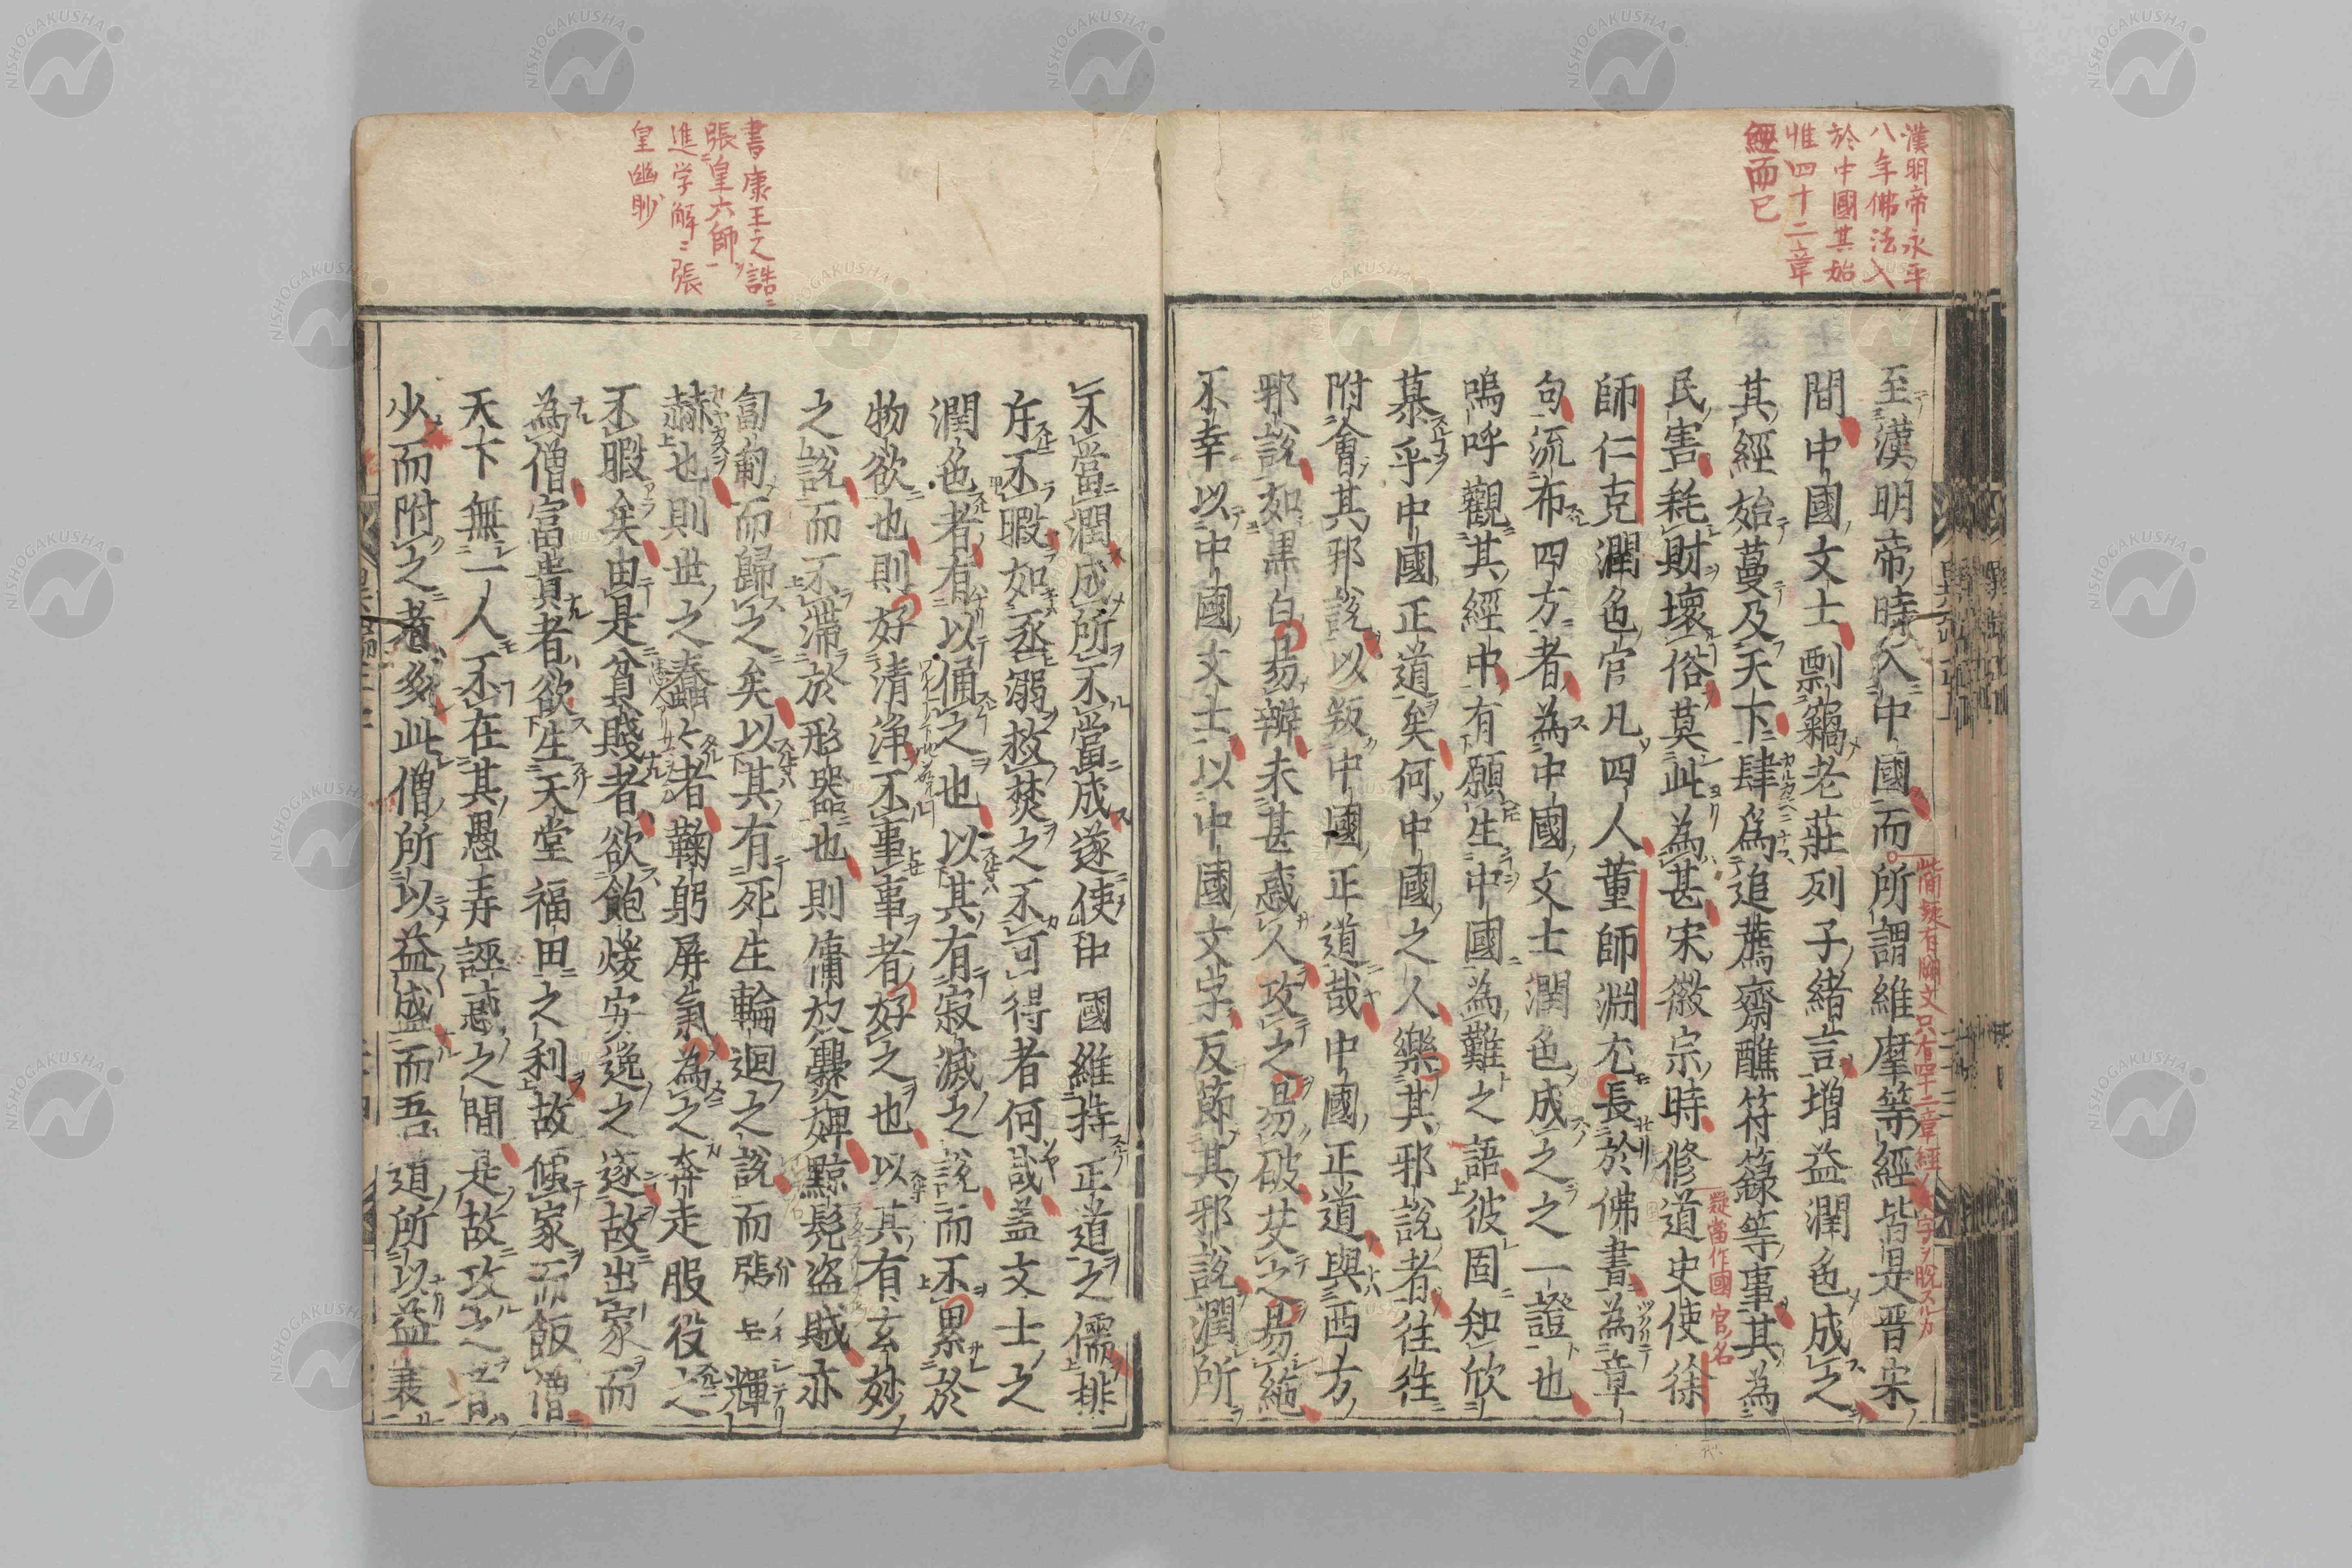 漢明帝永平
八年佛法入
於中國其始
惟四十二章
經而已
至漢明帝時入中國而所謂維摩等經皆是晋宋
間中國文士剽竊老莊列子緒言增益潤色成之
其經始蔓及天下肆爲追薦齋醮符籙等事其為
民害耗財壞俗莫此為甚宋徽宗時修道史使徐
師仁克潤色官凡四人董師淵尤長於佛書為章
句流布四方者為中國文士潤色成之之一證也
嗚呼觀其經中有願生中國為難之語彼固知欣
慕乎中國正道矣何中國之人樂其邪説者往往
附會其邪説以叛中國正道哉中國正道與西方
邪説如黒白易辯未甚惑人攻之易破芟之易絶
不幸以中國文士以中國文字反節其邪説潤所
此間疑有脚文只有四十二章經
疑當作國官名
書康王之誥ニ
張皇六師
進学解ニ張
皇幽眇
不當潤成所不當成遂使中國維持正道之儒排
斥不暇如丞溺救焚之不可得者何哉蓋文士之
潤色者有以俑之也以其有寂滅之説而不累於
物欲也則好清浄不事事者好之也以其有玄妙
之説而不滯於形器也則傭奴爨婢黥髡盗賊亦
匍匐而歸之矣以其有死生輪迴之説而張上輝
赫也則世之蠢々者鞠躬屏氣為之奔走服役之
不暇矣由是貧賤者欲飽煖安逸之遂故出家而
為僧富貴者欲生天堂福田之利故傾家而飯僧
天下無一人不在其愚弄誣惑之間是故攻之者
少而附之者多此僧所以益盛而吾道所以益衰